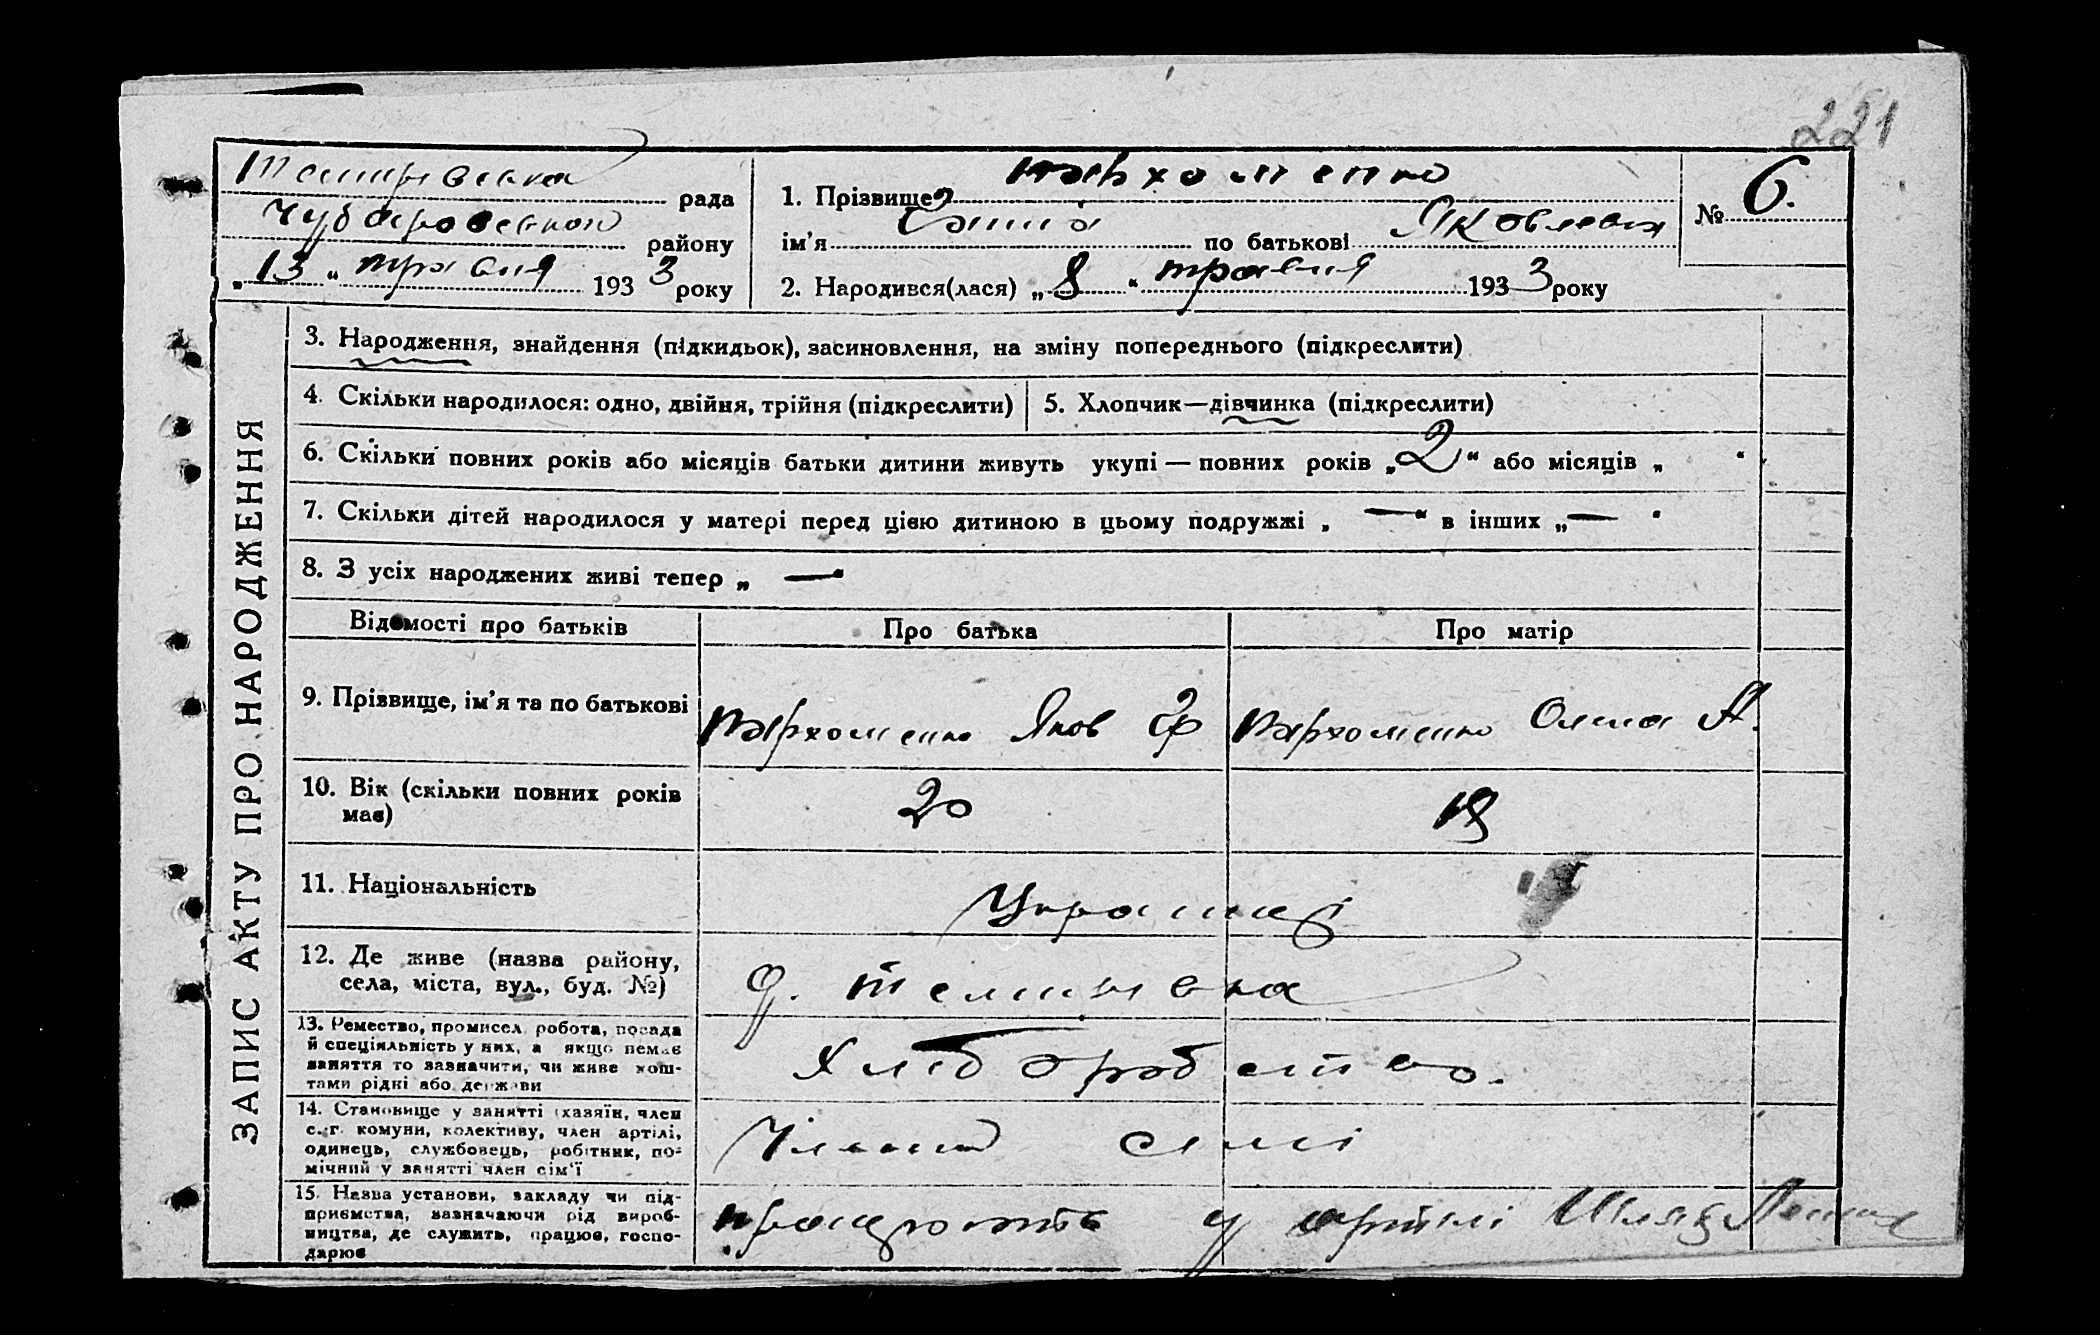 221
рада
Пархоменко
1. Прізвище
№ 6.
району
ім'я
по батькові Яковлевна
„13“ травня 1933 року
2. Народився(лася) „8“ травня 1933 року
ЗАПИС АКТУ ПРО НАРОДЖЕННЯ
3. Народження, знайдення (підкидьок), засиновлення, на зміну попереднього (підкреслити)
4. Скільки народилося: одно, двійня, трійня (підкреслити)
5. Хлопчик—дівчинка (підкреслити)
6. Скільки повних років або місяців батьки дитини живуть укупі — повних років „2“ або місяців „ “
7. Скільки дітей народилося у матері перед цією дитиною в цьому подружжі „—“ в інших „— “
8. З усіх народжених живі тепер „ —“
Відомості про батьків
Про батька
Про матір
9. Прізвище, ім'я та по батькові
Пархоменко Яков Ф
Пархоменко А.
10. Вік (скільки повних років
має)
20
11. Національність
Українці
12. Де живе (назва району,
села, міста, вул., буд. №)
13. Ремество, промисел, робота, посада
й спеціяльність у них, а якщо немає
заняття то зазначити, чи живе кош-
тами рідні або держави
Хліборобство.
14. Становище у занятті (хазяїн, член
с.-г. комуни, колективу, член артілі,
одинець, службовець, робітник, по-
мічний у занятті член сім'ї
15. Назва установи, закладу чи під-
приємства, зазначаючи рід вироб-
ництва, де служить, працює, госпо-
дарює
працюють у артілі Шлях